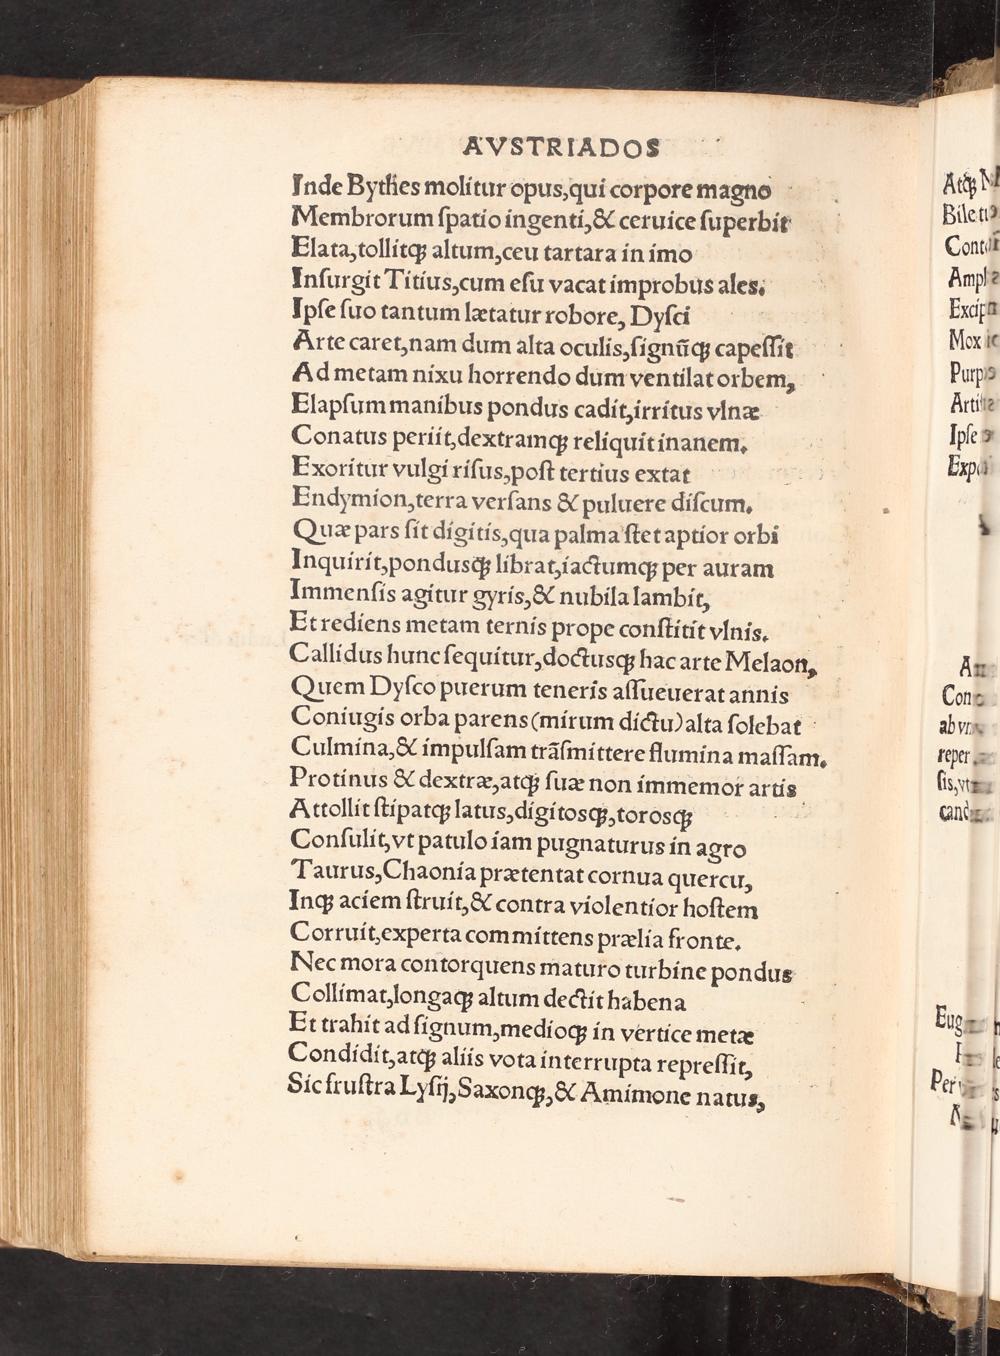 AVSTRIADOS
Inde Bythes molitur opus,qui corpore magno
Membrorum ſpatio ingenti,& ceruice ſuperbit
Elata,tollitqꝫ altum,ceu tartara in imo
Inſurgit Titius,cum eſu vacat improbus ales.
Ipſe ſuo tantum lætatur robore, Dyſci
Arte caret,nam dum alta oculis,ſignũqꝫ capeſſit
Ad metam nixu horrendo dum ventilat orbem,
Elapſum manibus pondus cadit,irritus vlnæ
Conatus periit,dextramqꝫ reliquit inanem.
Exoritur vulgi riſus,poſt tertius extat
Endymion,terra verſans & puluere diſcum.
Quæ pars ſit digitis,qua palma ſtet aptior orbi
Inquirit,pondusqꝫ librat,iactumqꝫ per auram
Immenſis agitur gyris,& nubila lambit,
Et rediens metam ternis prope conſtitit vlnis.
Callidus hunc ſequitur,doctusqꝫ hac arte Melaon,
Quem Dyſco puerum teneris aſſueuerat annis
Coniugis orba parens(mirum dictu)alta ſolebat
Culmina,& impulſam trãſmittere flumina maſſam.
Protinus & dextræ,atqꝫ ſuæ non immemor artis
Attollit ſtipatqꝫ latus,digitosqꝫ,torosqꝫ
Conſulit,vt patulo iam pugnaturus in agro
Taurus,Chaonia prætentat cornua quercu,
Inqꝫ aciem ſtruit,& contra violentior hoſtem
Corruit,experta committens prælia fronte.
Nec mora contorquens maturo turbine pondus
Collimat,longaqꝫ altum dectit habena
Et trahit ad ſignum,medioqꝫ in vertice metæ
Condidit,atqꝫ aliis vota interrupta repreſſit,
Sic fruſtra Lyſij,Saxonqꝫ,& Amimone natus,
Atqꝫ
Ipſe